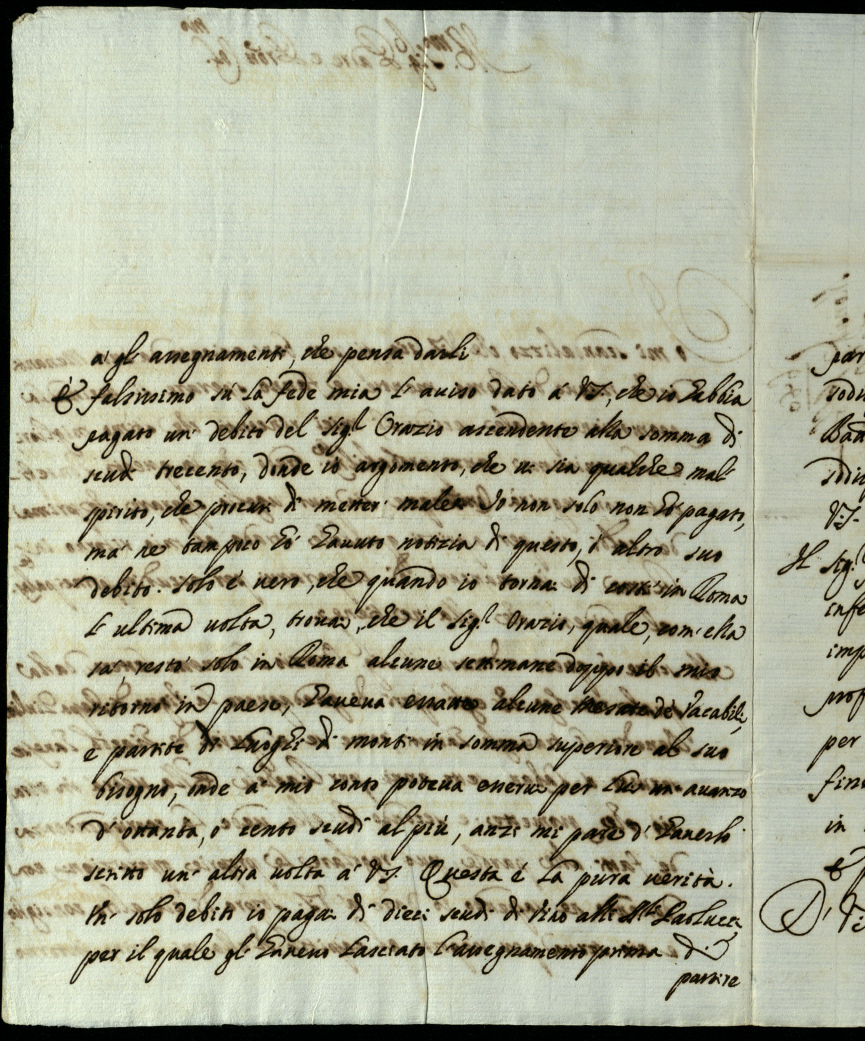 a' gl' assegnamenti, che pensa darli
È falsissimo sù la fede mia l'aviso dato à VS, che io habbia
pagato un' debito del Sig.r Orazio ascendente alla somma di
scudi trecento, donde io argomento, che vi sia qualche mal'
spirito, che procuri di metter' male. Io non solo non hò pagato,
mà ne tampoco hò havuto notizia di questo, ò altro suo
debito. Solo è vero, che quando io tornai di costì in Roma
l'ultima volta, trovai, che il Sig.r Orazio, quale, com'ella
sà, restò solo in Roma alcune settimane doppo il mio
ritorno in paese, haveva esatto alcune mesate di Vacabili,
e partite di luoghi di monti in somma superiore al suo
bisogno, onde à mio conto poteva esservi per lui un avanzo
d'ottanta, ò cento scudi al più, anzi mi pare d'haverlo
scritto un' altra volta à VS. Questa è la pura verità.
Un' solo debito io pagai di dieci scudi di alli Paolucci
per il quale gl' havevo lasciato l'assegnamento prima di
partire
par
sodi
Ban
sodi
VS.
Il Sig.r
infe
imp
prof
per
fin
in